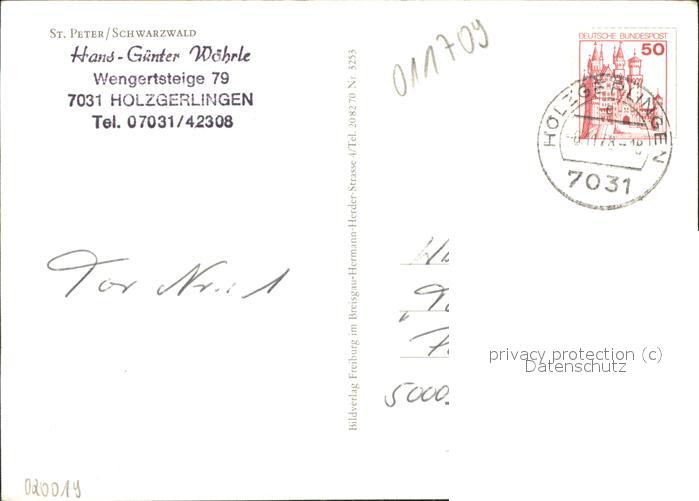 St. Peter/Schwarzwald
Hans-Günter Wöhrle
Wengertsteige 79
7031 HOLZGERLINGEN
Tel. 07031/42308
Bildverlag Freiburg im Breisgau-Hermann-Herder-Strasse 4/Tel. 208270 Nr. 3253
011709
DEUTSCHE BUNDESPOST
50
HOLZGERLINGEN
7031
Tor Nr.: 1
5000
privacy protection (c)
Datenschutz
020019